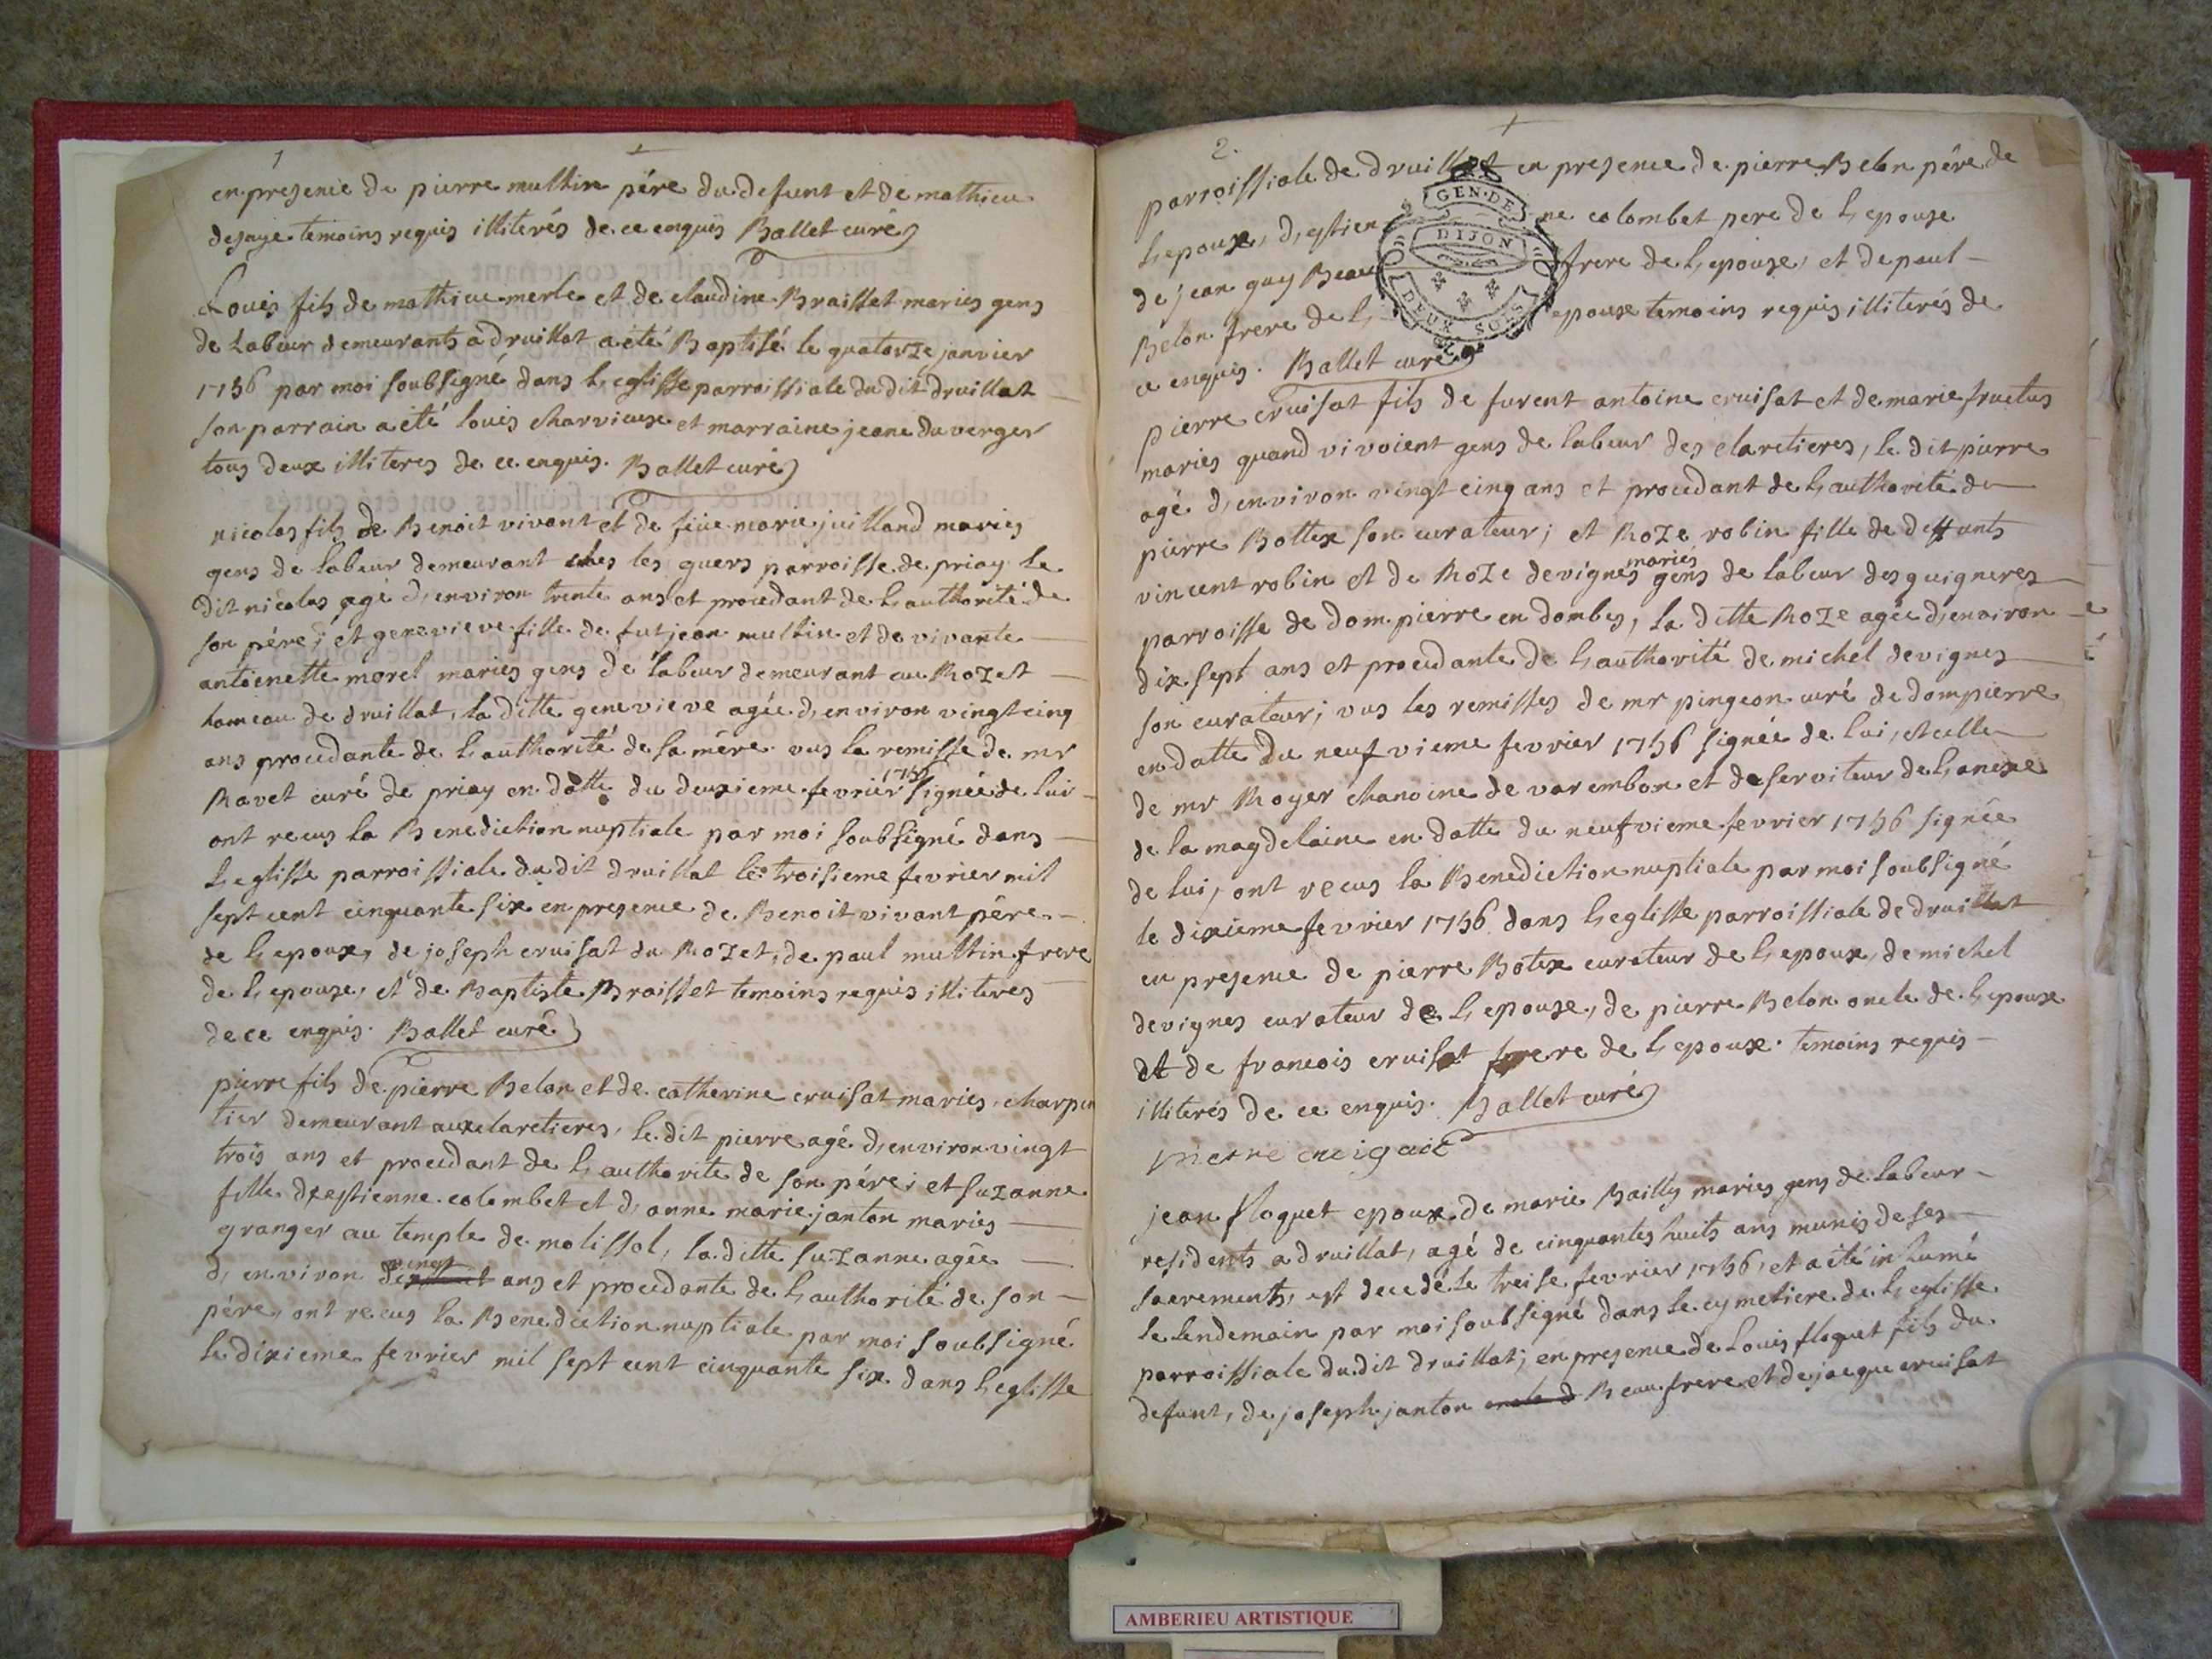 1
en presence de pierre multin pére du defunt et de mathieu
dejaye temoins requis illiterés de ce enquis Ballet curé
Louis fils de mathieu merle et de claudine Braillat mariés gens
de Labeur demeurants a druillat a été Baptisé le quatorze janvier
1756 par moi soubsigné dans L eglisse parroissiale du dit druillat
son parrain a été louis charvieux et marraine jeane duverger
tous deux illiteres de ce enquis. Ballet curé
nicolas fils de Benoit vivant et de feüe marie juilland mariés
gens de labeur demeurant ches les guers parroisse de priay le
dit nicolas agé d, environ trente ans et procedant de L authorité de
son pére; et genevieve fille de fut jean multin et de vivante
antoinette morel mariés gens de labeur demeurant au Rozet
hameau de druillat, la ditte genevieve agée d, environ vingt cinq
ans procedante de L authorité de sa mére. vus la remisse de mr
Ravet curé de priay en datte du deuxieme fevrier 1756 signée de lui
ont recus la Benediction nuptiale par moi soubsigné dans
L eglisse parroissiale du dit druillat le troisieme fevrier mil
sept cent cinquante six en presence de Benoit vivant pére
de L epoux, de joseph cruisat du Rozet, de paul multin frere
de L epouse, et de Baptiste Braisset temoins requis illiteres
de ce enquis. Ballet curé
pierre fils de pierre Belon et de catherine cruisat mariés, charpen
tier demeurant aux claretieres, le dit pierre agé d, environ vingt
trois ans et procedant de L authorite de son pére; et suzanne
fille d, estienne colombet et d, anne marie janton mariés
granger au temple de molissol, la ditte suzanne agée
d, environ vingt ans et procedante de L authorité de son
pére, ont recus la Benediction nuptiale par moi soubsigné
le dixieme fevrier mil sept cent cinquante six dans L eglisse
2.
parroissiale de druillat en presence de pierre Belon pére de
L epoux, d, estienne colombet pere de L epouse
de jean guy Beau frere de L epouse, et de paul
Belon frere de L epoux temoins requis illiterés de
ce enquis. Ballet curé
GEN. DE
DIJON
DEUX SOLS
pierre cruisat fils de furent antoine cruisat et de marie fructus
mariés quand vivoient gens de labeur des claretieres, le dit pierre
agé d, environ vingt cinq ans et procedant de L authorité de
pierre Bottex son curateur; et Roze robin fille de deffunts
vincent robin et de Roze devignes mariés gens de labeur des guigneres
parroisse de dom pierre en dombes, la ditte Roze agée d, environ
dix sept ans et procedante de L authorité de michel devignes
son curateur; vus les remisses de mr pingeon curé de dompierre
en datte du neuf vieme fevrier 1756 signée de lui, et celle
de mr Royer chanoine de varembon et deserviteur de L anexe
de la magdelaine en datte du neufvieme fevrier 1756 signée
de lui, ont recus la Benediction nuptiale par moi soubsigné
le dixieme fevrier 1756 dans L eglisse parroissiale de druillat
en presence de pierre Botex curateur de L epoux, de michel
devignes curateur de L epouse, de pierre Belon oncle de L epoux
et de francois cruisat frere de L epoux. temoins requis
illiterés de ce enquis. Ballet curé
jean floquet epoux de marie Bailly mariés gens de labeur
residents a druillat, agé de cinquantes huits ans munis de ses
sacrements, est decedé le treise fevrier 1756, et a été inhumé
le lendemain par moi soubsigné dans le cymetiere de L eglisse
parroissiale du dit druillat; en presence de Louis floquet fils du
defunt, de joseph janton Beau frere et de jacque cruisat
AMBERIEU ARTISTIQUE